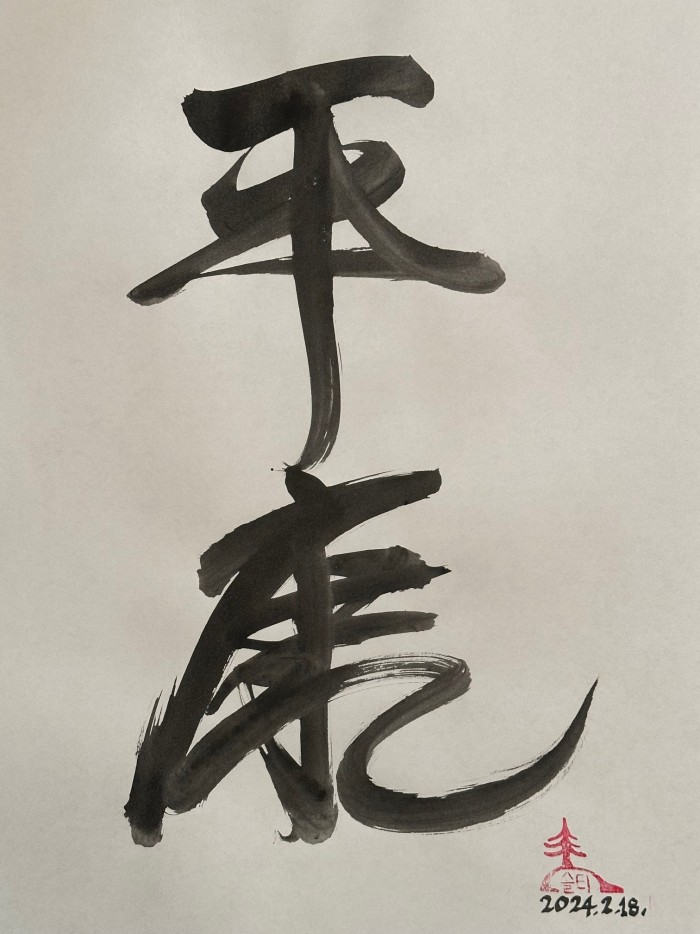 平
康
솔티
2024.2.18.